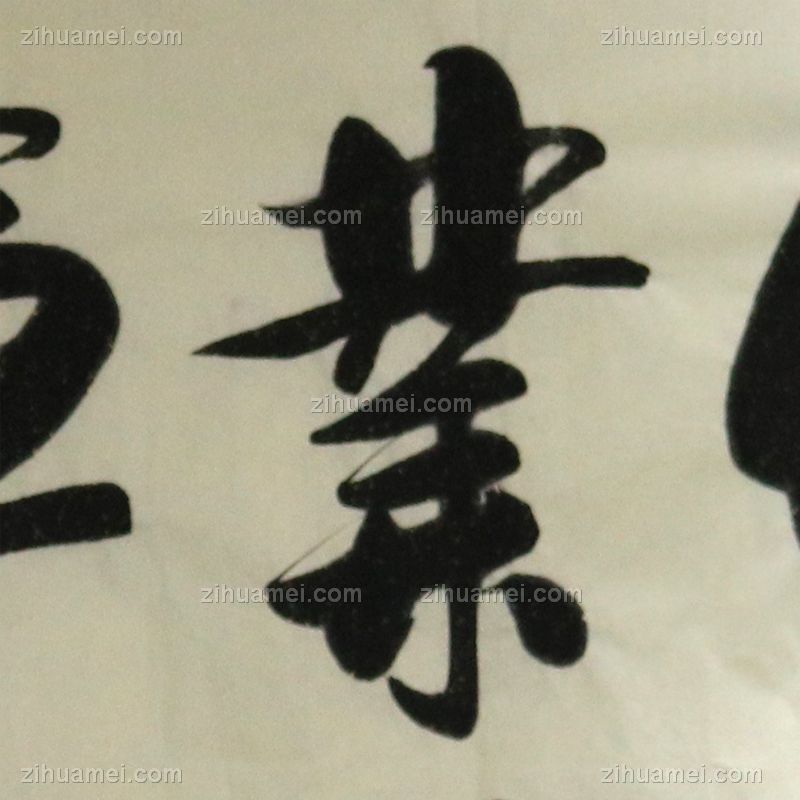 業
zihuamei.com zihuamei.com zihuamei.com
zihuamei.com zihuamei.com
zihuamei.com
zihuamei.com zihuamei.com
zihuamei.com zihuamei.com zihuamei.com